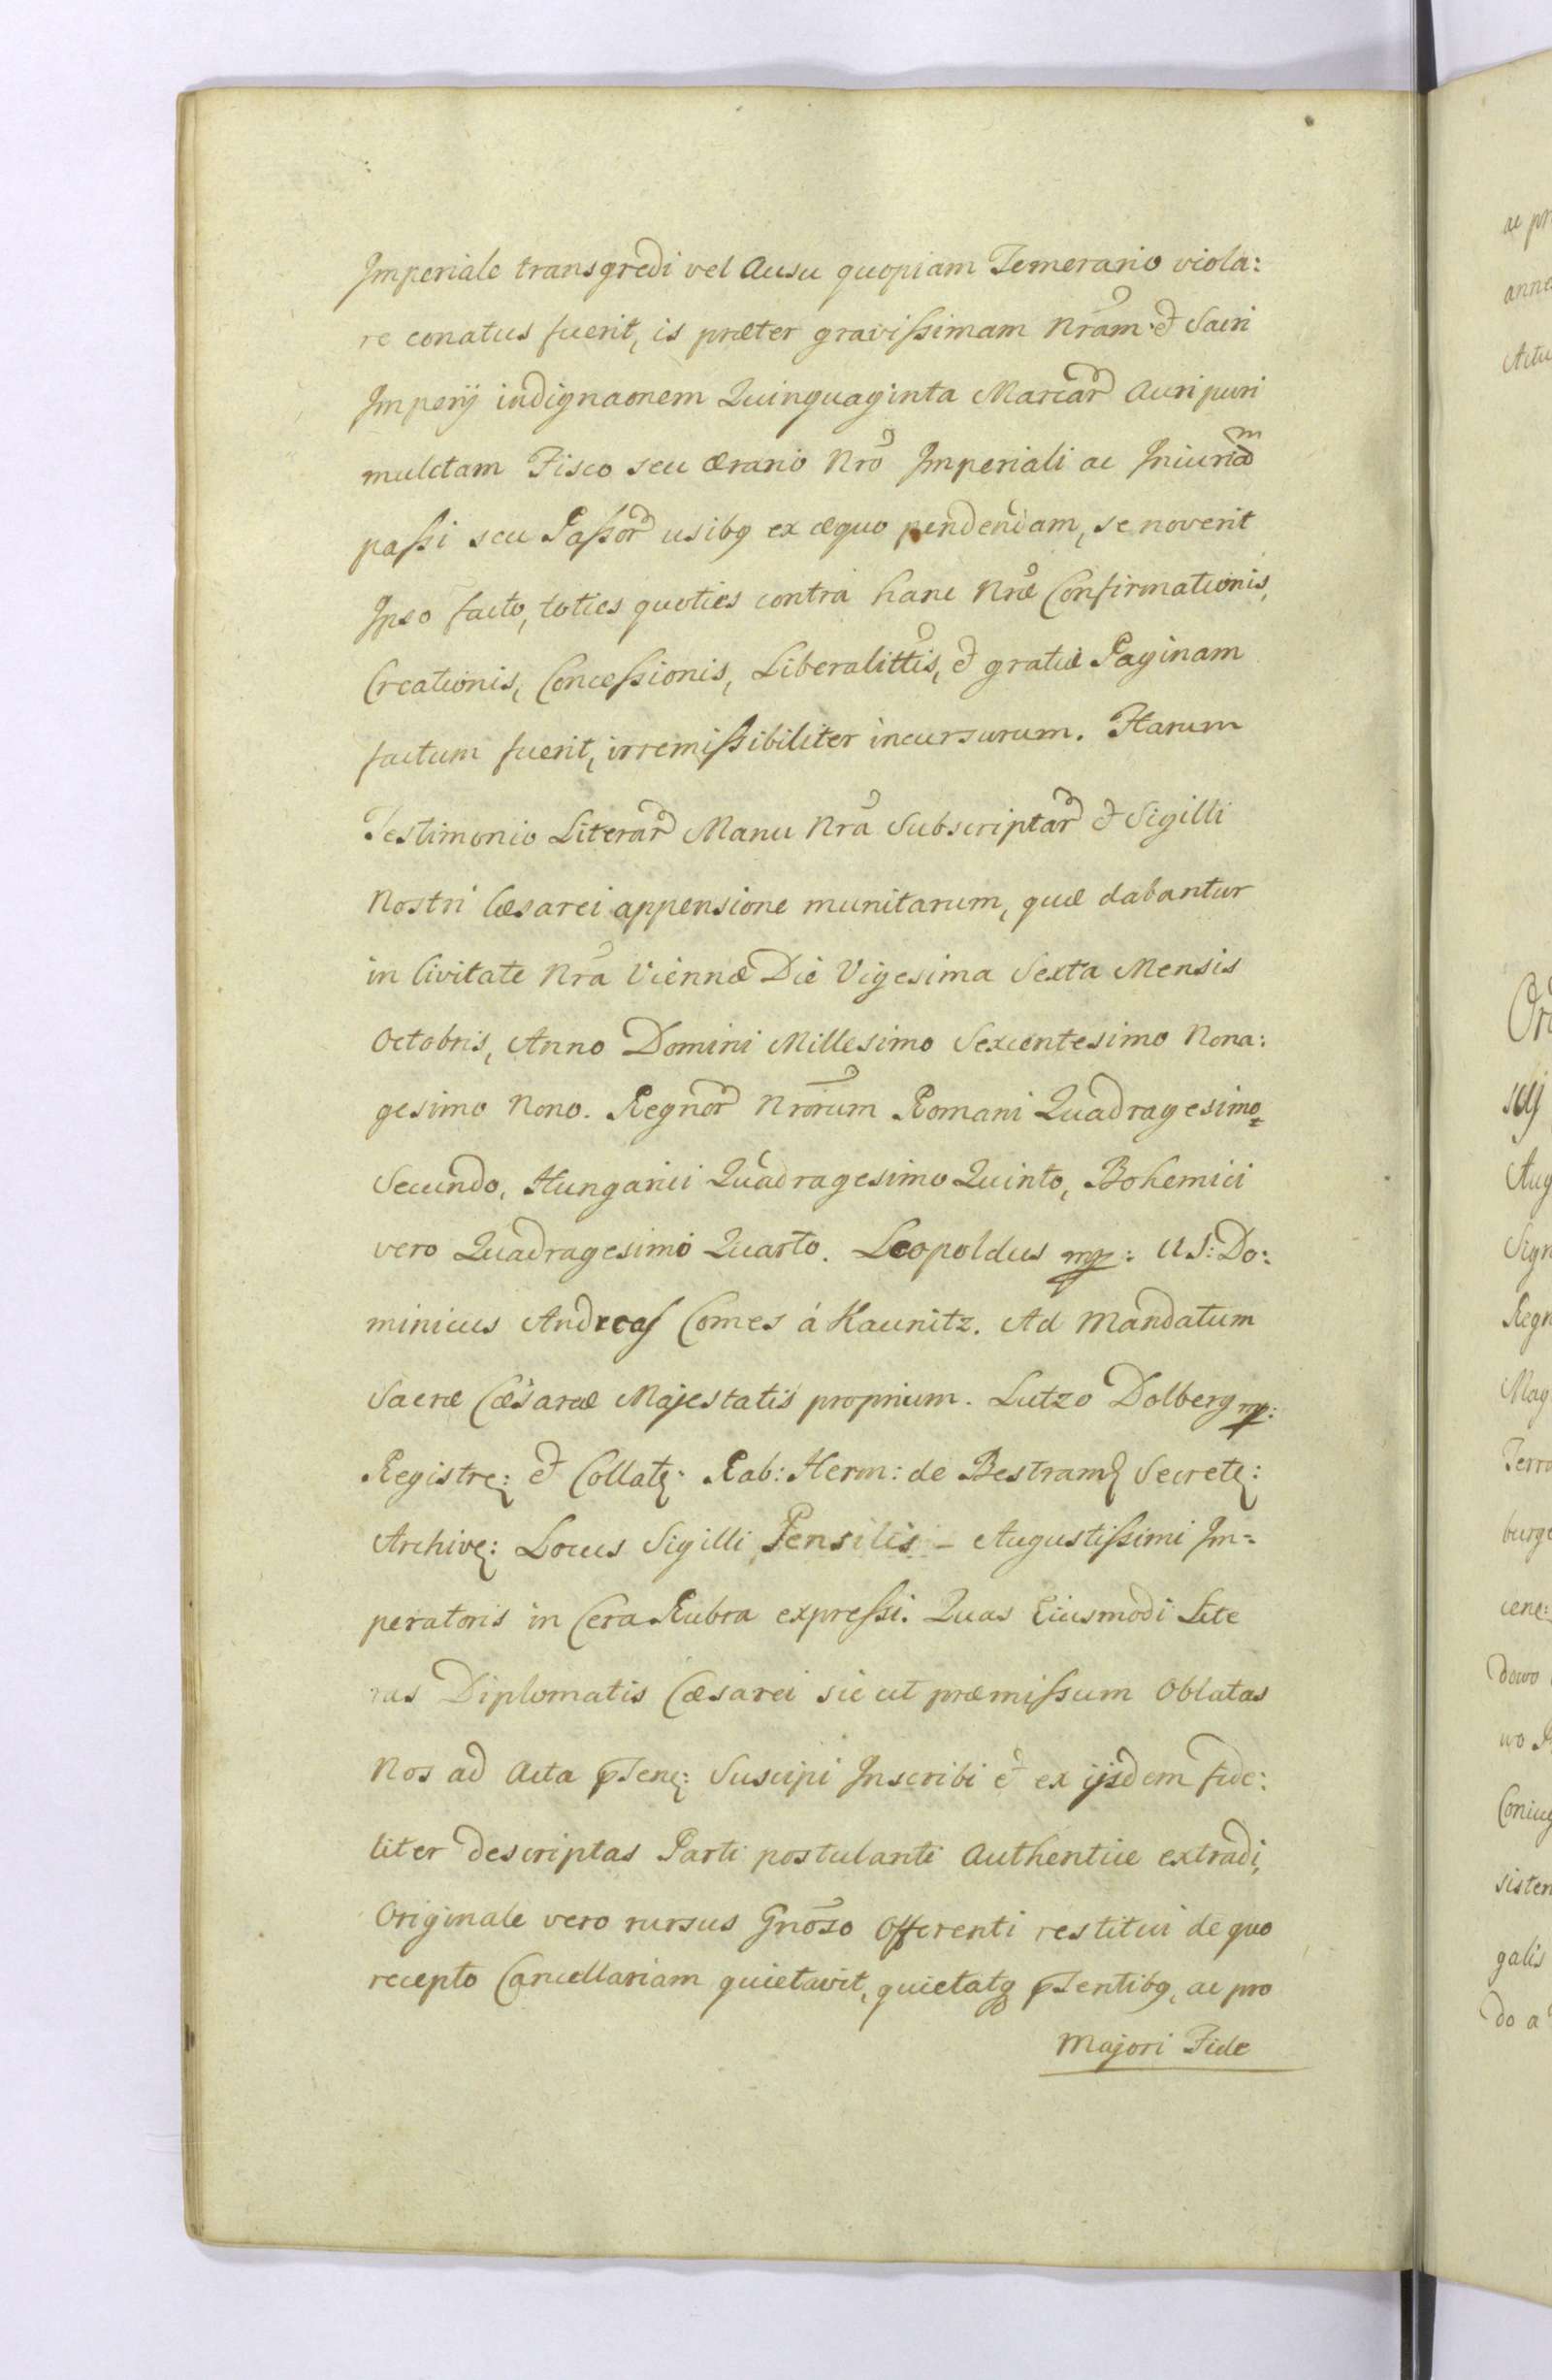 Imperiale transgredi vel Ausu quopiam Temerario viola:
re conatus fuerit, is præter gravißimam Nram et Sacri
Imperij indignaonem Quinquaginta Marcar Auri puri
mulctam Fisco seu ærario Nro Imperiali ac Iniuriam
paßi seu Paßor usibq ex æquo pendendam, se noverit
Ipso facto, toties quoties contra hanc Nræ Confirmationis,
Creationis, Conceßionis, Liberalittis, et gratiæ Paginam
factum fuerit, irremißibiliter incursurum. Harum
Testimonio Literar Manu Nra Subscriptar et Sigilli
Nostri Cæsarei appensione munitarum, quæ dabantur
in Civitate Nra Viennæ Die Vigesima Sexta Mensis
Octobris, Anno Domini Millesimo Sexcentesimo Nona:
gesimo Nono. Regnor Nrorum Romani Quadragesimo
Secundo, Hungarici Quadragesimo Quinto, Bohemici
vero Quadragesimo Quarto. Leopoldus mp: Us: Do:
minicus Andreas Comes á Kaunitz. Ad Mandatum
Sacræ Cæsareæ Majestatis proprium. Lutzo Dolberg mp:
Registr: et Collat: Rab: Herm: de Bestram Secret:
Archiv: Locus Sigilli Pensilis - Augustißimi Im=
peratoris in Cera Rubra expreßi. Quas Eiusmodi Lite
ras Diplomatis Cæsarei sic ut præmißum Oblatas
Nos ad Acta pten: Suscipi Inscribi et ex ijsdem fide:
liter descriptas Parti postulanti Authentice extradi,
Originale vero rursus Gnoso Offerenti restitui de quo
recepto Cancellariam quietavit, quietatq ptentibq, ac pro
Majori Fide